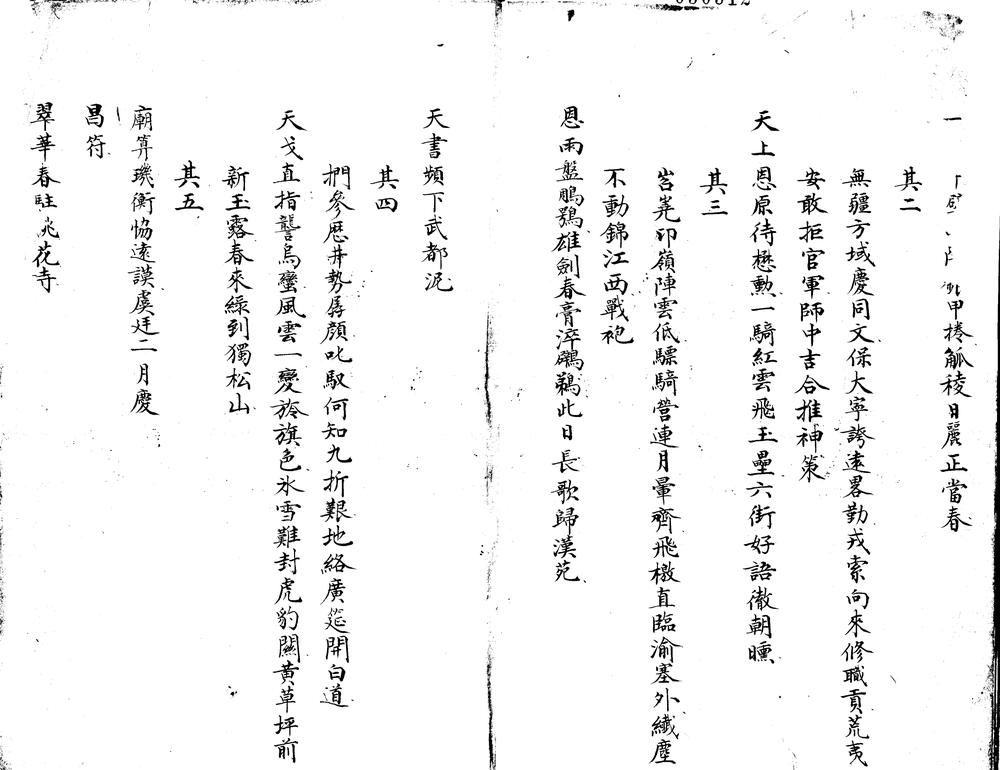 甲捲觚稜日麗正當春
其二
無疆方域慶同文保大寧誇遠畧勤戎索向來修職貢荒夷
安敢拒官軍師中吉合推神策
天上恩原待懋勲一騎紅雲飛玉壘六街好語徹朝曛
其三
岧嶤卭嶺陣雲低驃騎營連月暈齊飛檄直臨渝塞外纖塵
不動錦江西戰袍
恩雨盤鵰鶚雄劍春膏淬鷿鵜此日長歌歸漢苑
天書頻下武都泥
其四
捫參歷井勢孱顔叱馭何知九折艱地絡廣筵開白道
天戈直指讋烏蠻風雲一變旍旗色氷雪難封虎豹關黃草坪前
新玉露春來緑到獨松山
其五
廟筭璣衡恊遠謨虞廷二月慶
昌符
翠華春駐花寺